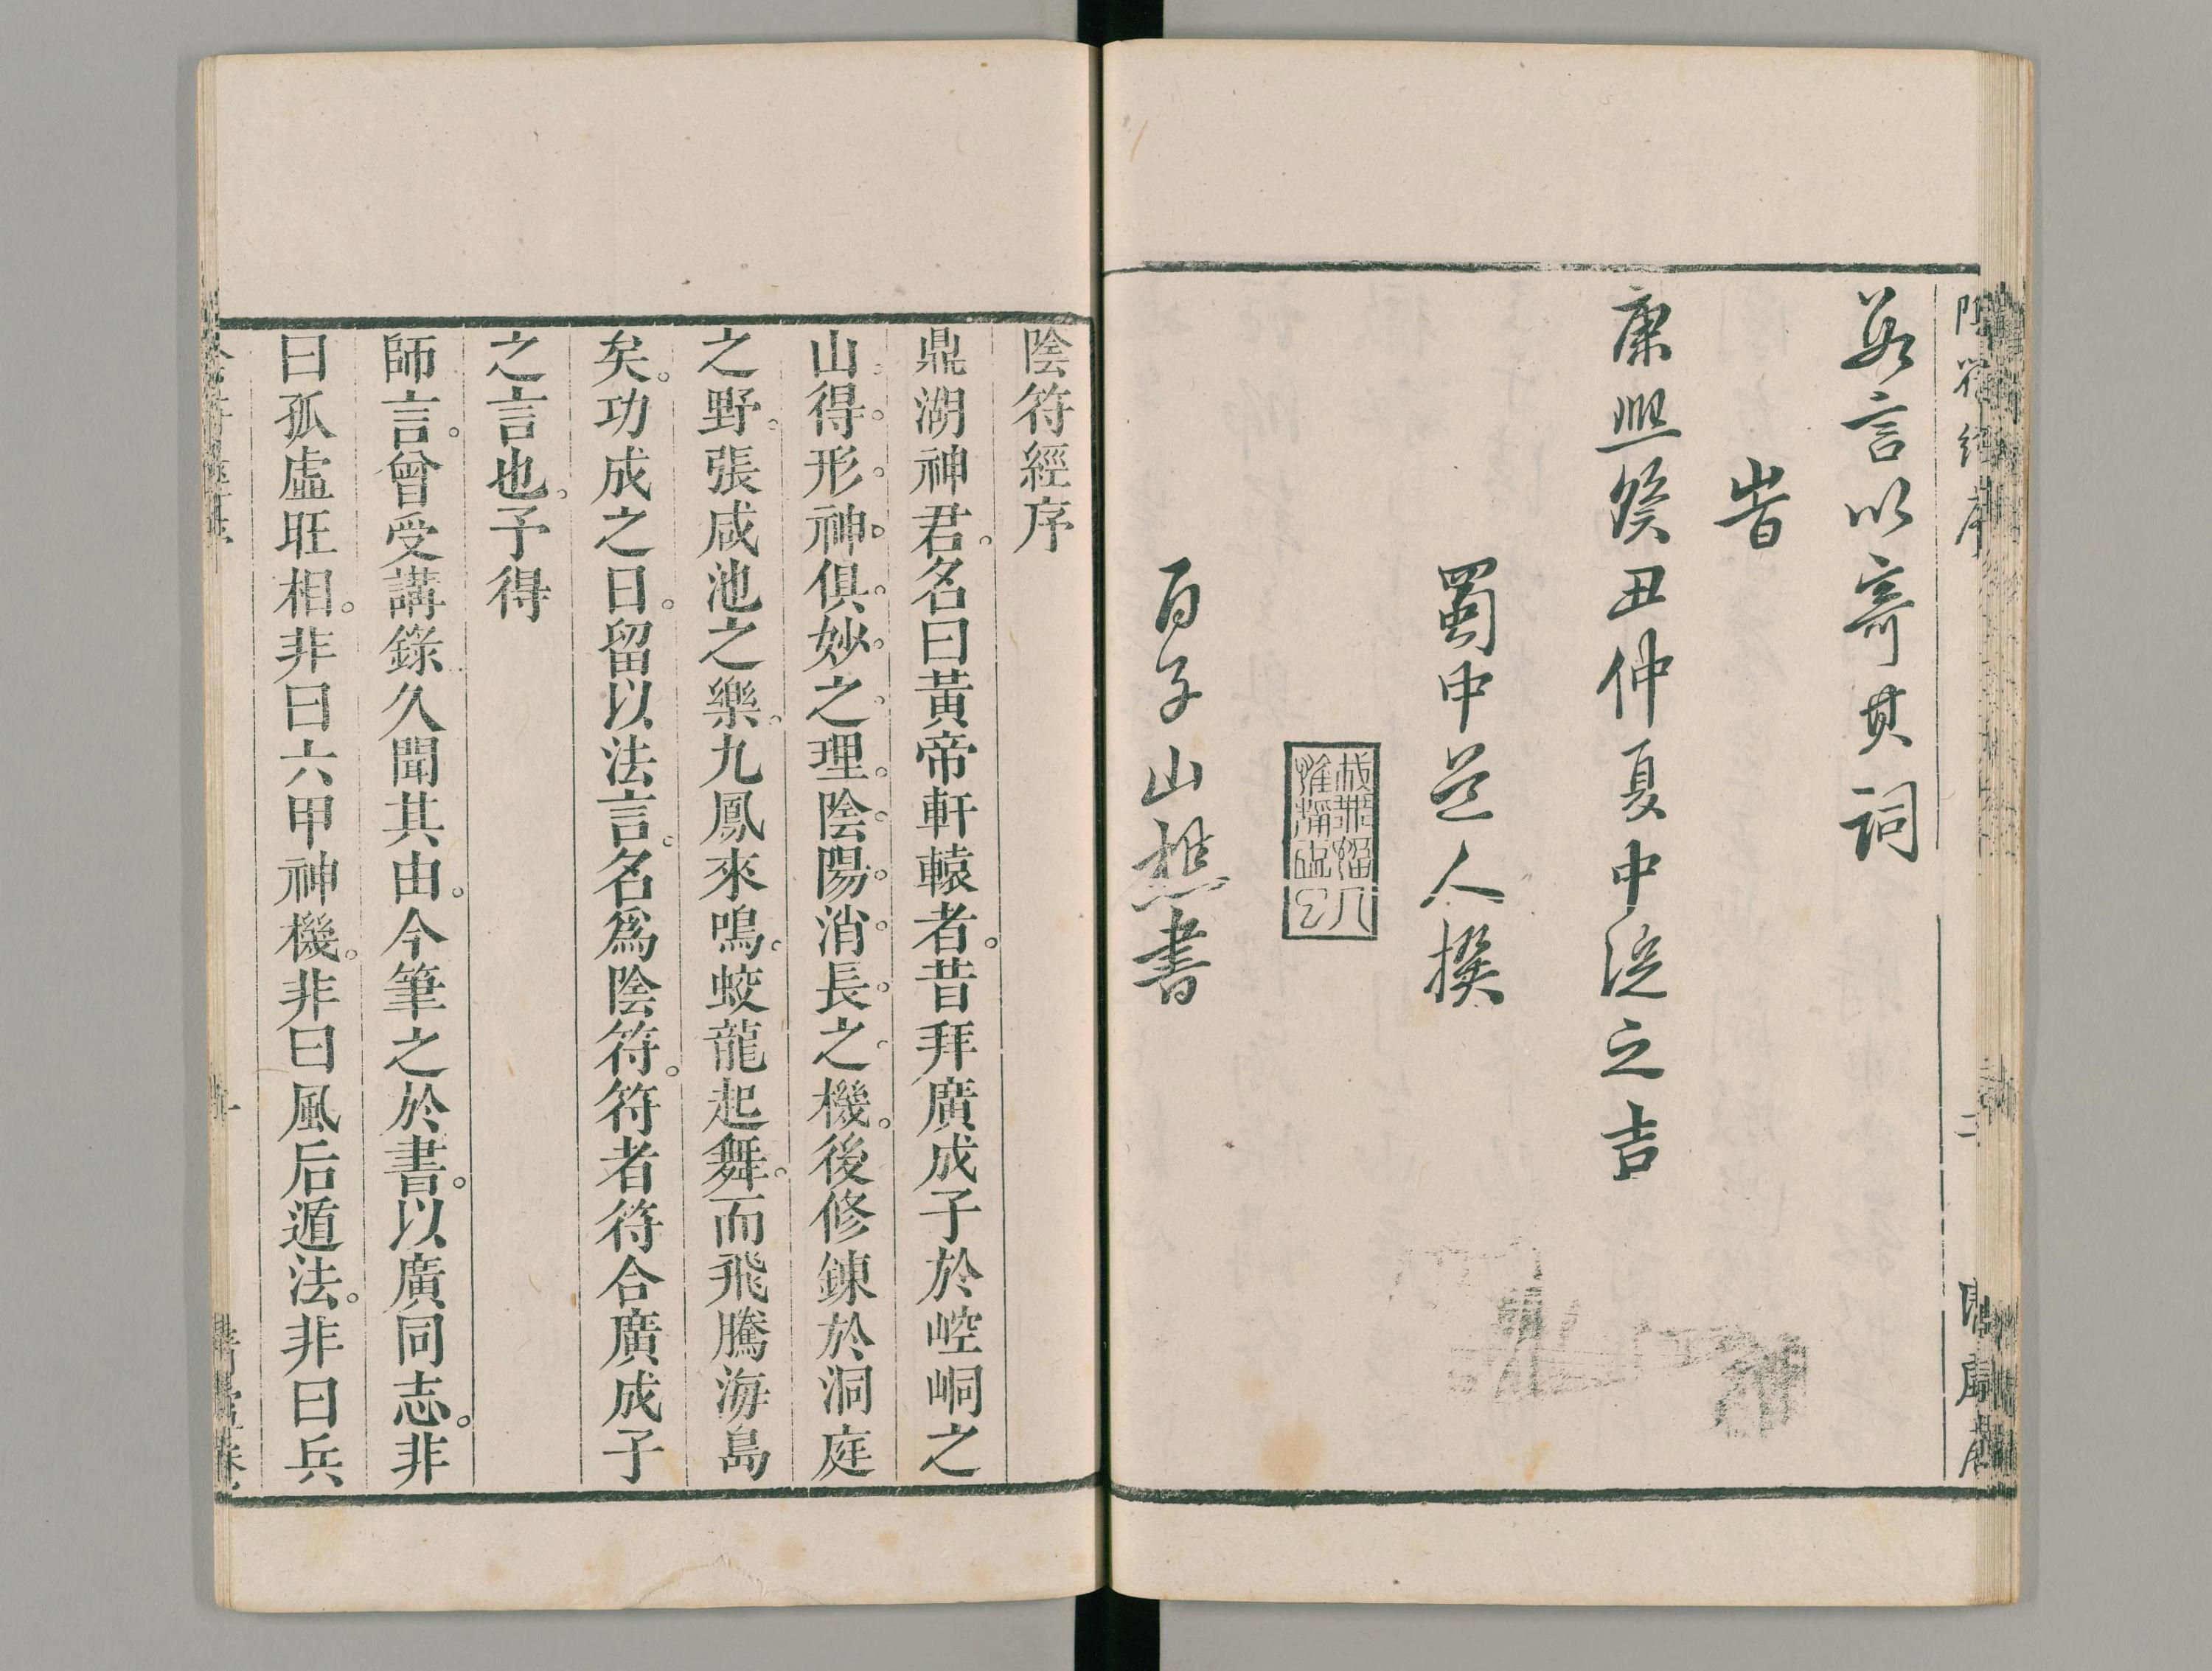 數言以寄其詞
旹
康熙癸丑仲夏中浣之吉
蜀中道人撰
百子山樵書
陰符經序
鼎湖神君。名曰黃帝軒轅者。昔拜廣成子於崆峒之
山。得。形。神。俱。妙。之。理。陰。陽。消。長。之。機。後修鍊於洞庭
之野。張咸池之樂。九鳳來鳴。蛟龍起舞。而飛騰海島
矣。功成之日。留以法言。名爲陰符。符者符合廣成子
之言也。予得
師言。曾受講錄久聞其由。今筆之於書。以廣同志。非
曰孤虛旺相。非曰六甲神機。非曰風后遁法。非曰兵